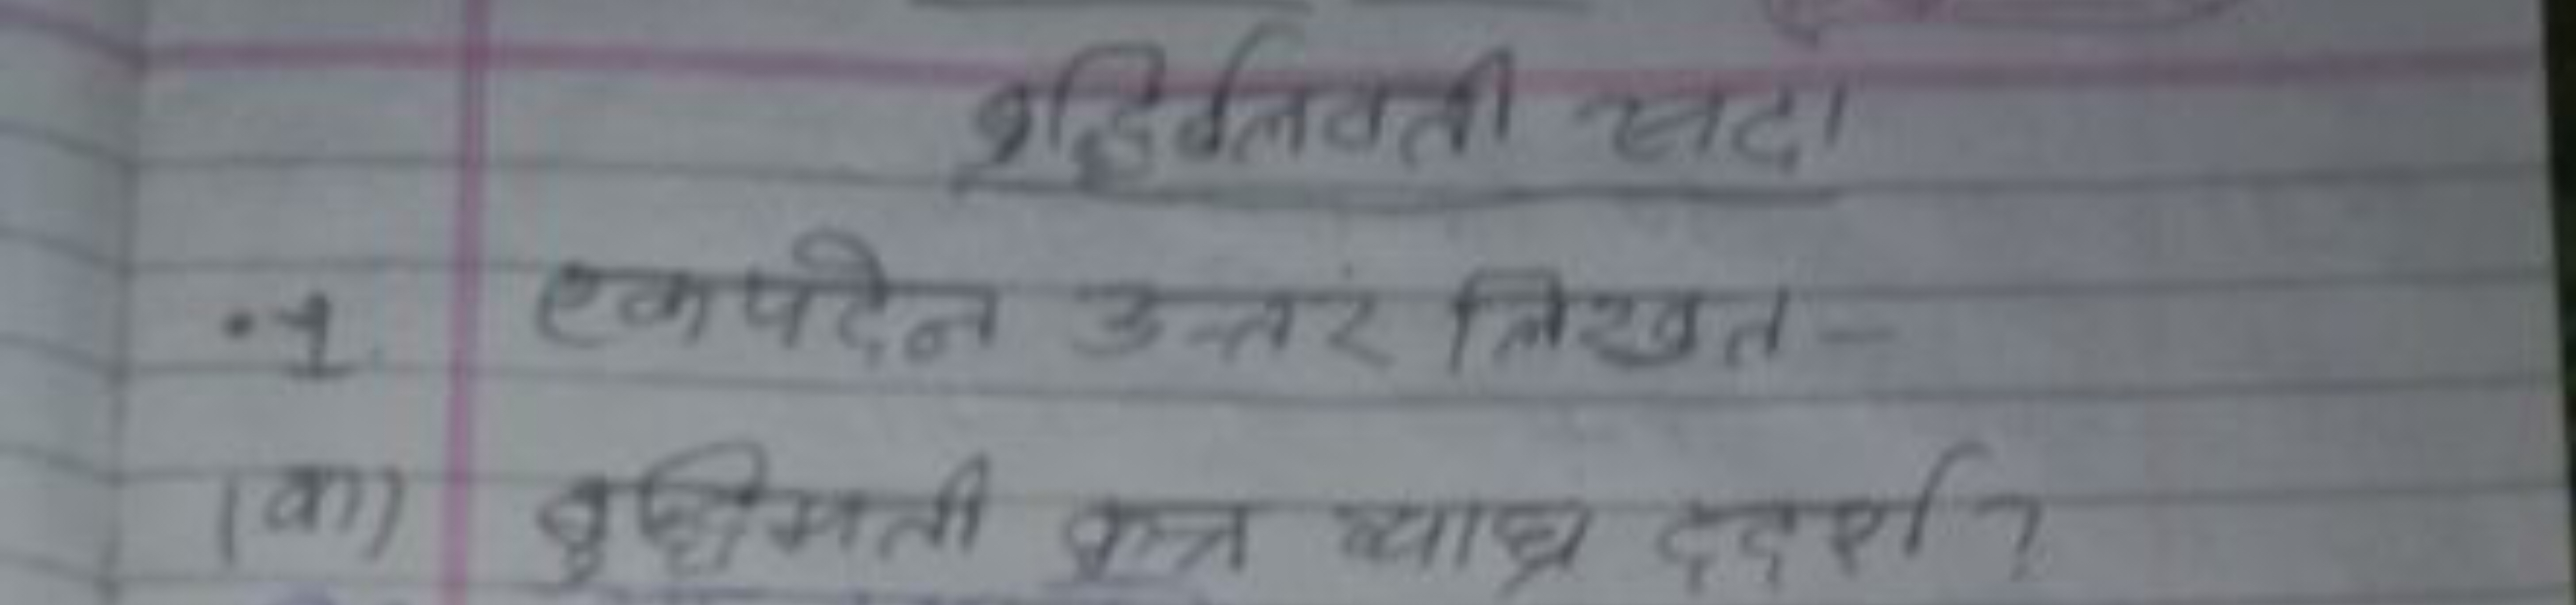 बुद्धिर्बलवती सदा
·१ एकपदेन उत्तरं लिखत –
(क) बुद्धिमती कुत्र व्याघ्र ददर्श ?